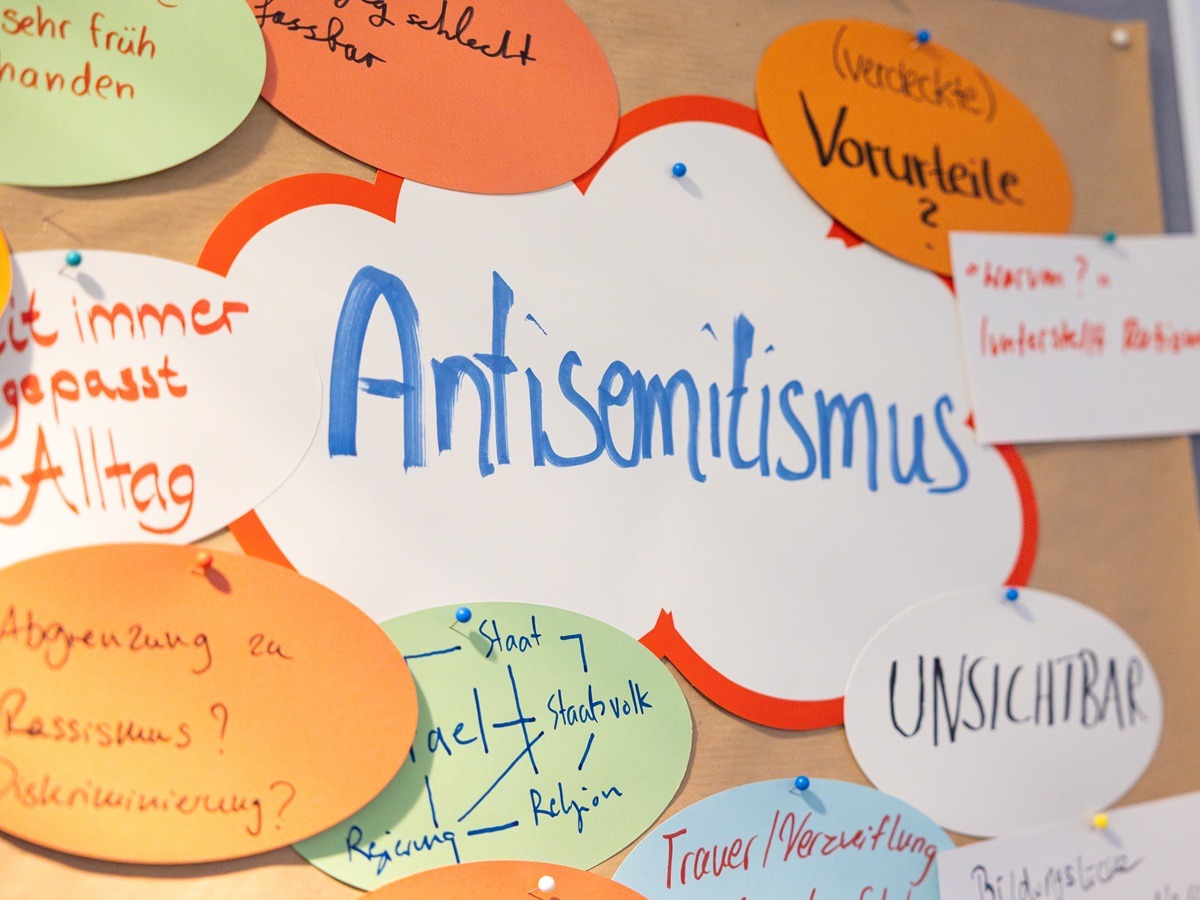 sehr früh
handen
schlecht
fassbar
(verdeckte)
Vorurteile
?
"Warum?"
immer
gepasst
Alltag
Antisemitismus
Abgrenzung zu
Rassismus?
Diskriminierung?
Staat
Staatsvolk
Religion
Regierung
UNSICHTBAR
Trauer/Verzweiflung